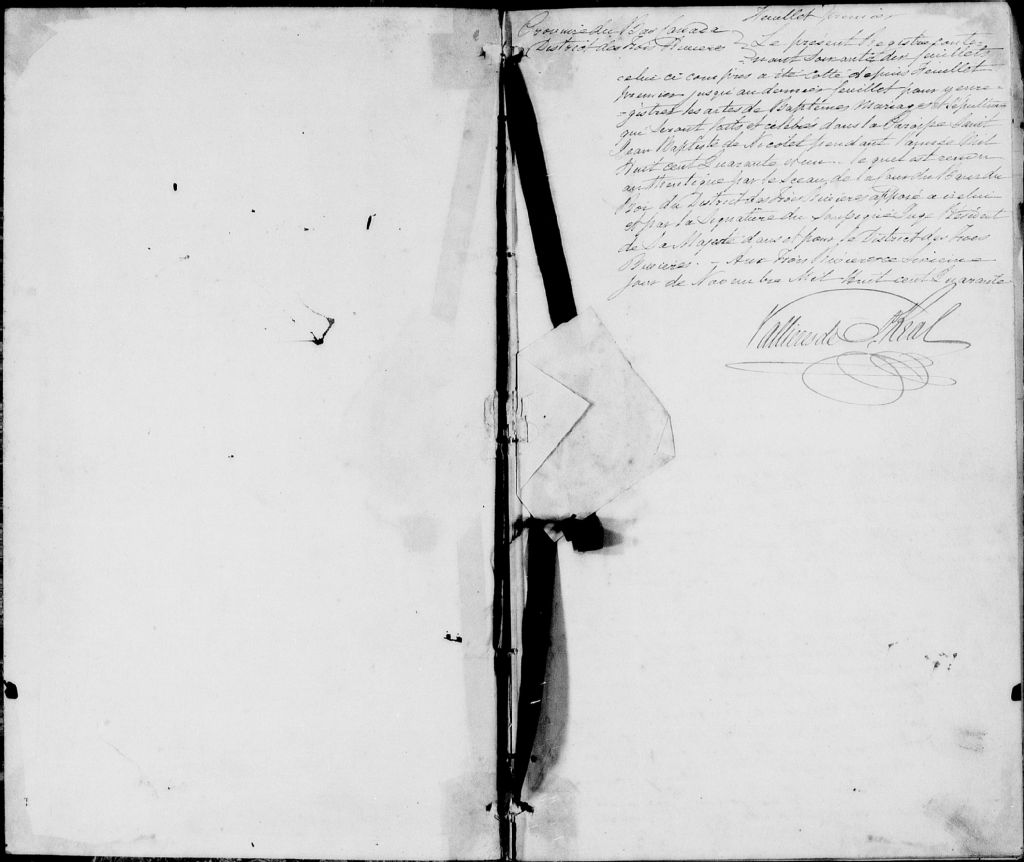 Feuillet premier
Province du Bas Canada
District des Trois Rivieres
Le présent Registre conte-
-nant Soixante dix feuillets
celui ci compris a été cotté depuis Feuillet
premier jusqu'au dernier feuillet pour y enre-
-gistrer les actes de Baptêmes Mariages & Sépultures
qui seront faits et célébrés dans la Paroisse Saint
Jean Baptiste de Nicolet pendant l'année Mil
Huit cent Quarante et un. lequel est rendu
authentique par le Sceau de la Cour du Banc du
Roi du District des Trois Rivieres apposé a icelui
et par la Signature du Soussigné Juge Résident
de Sa Majesté dans et pour le District des Trois
Rivieres. - Aux Trois Rivieres ce
jour de Novembre Mil Huit cent Quarante
Vallieres de St Real